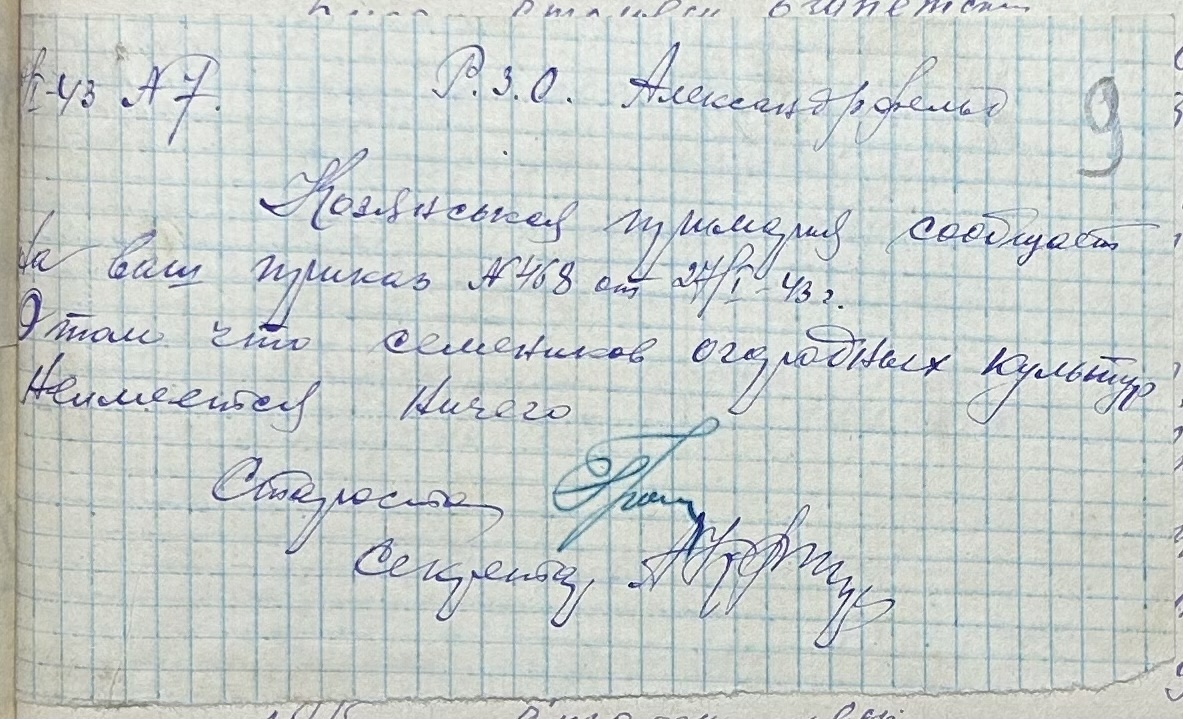 I-43 № 7.
Р.З.О. Александрфельд
9
Козянськая примария сообщает
На ваш приказ № 468 от 27/I-43 г.
О том что семенков огародных культур
Неимеется Ничего
Староста
Секрета,